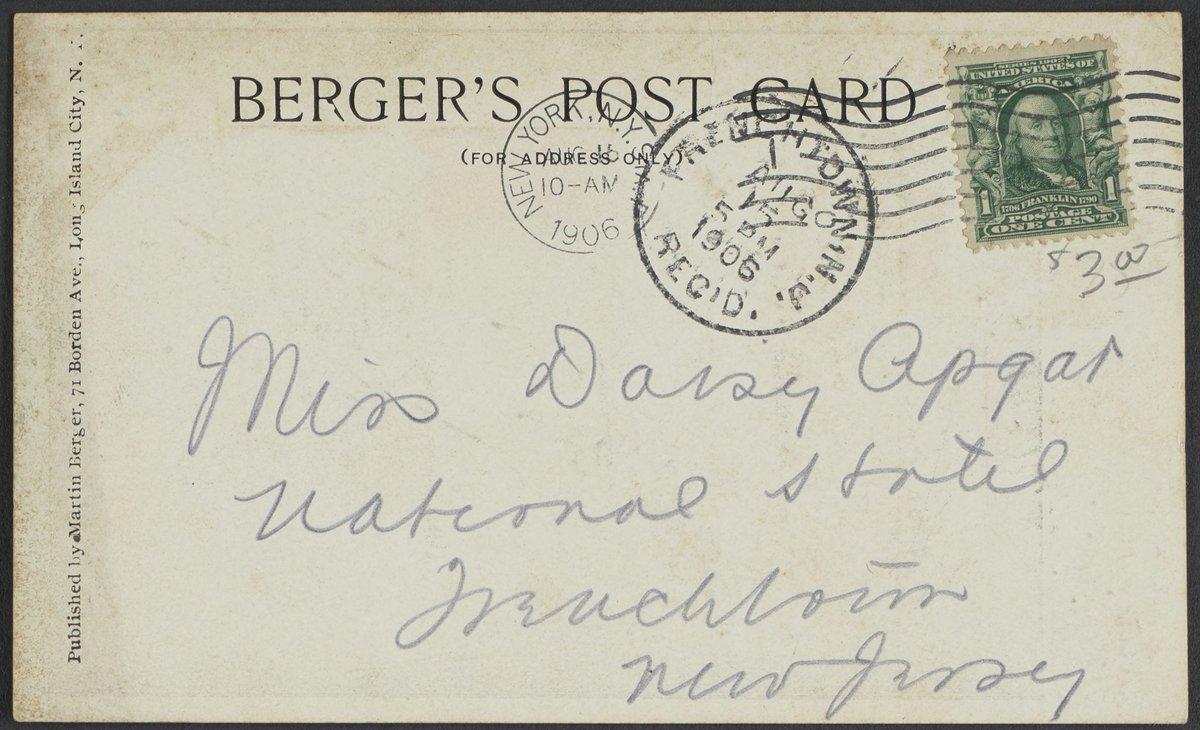 BERGER'S POST CARD
(FOR ADDRESS ONLY)
NEW YORK, N.Y.
AUG 15
10-AM
1906
FRENCHTOWN, N.J.
AUG
5 PM
1906
REC'D.
SERIES 1902
UNITED STATES OF
AMERICA
1 1
1706 FRANKLIN 1790
POSTAGE
ONE CENT
$3.00
Miss Daisy Apgar
National Hotel
Frenchtown
New Jersey
Published by Martin Berger, 71 Borden Ave., Long Island City, N. Y.